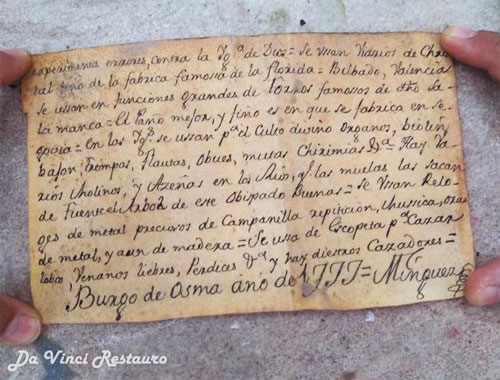 experimenta errores, contra la Ygª de Dios = Se Vssan Vidrios de Chris
tal fino de la fabrica famossa de la florida = Bilbado, Valencia
Se vssan en funciones grandes de toros famosos de Sa
lamanca = El Pano mejor, y fino es en que se fabrica en Se
govia = En las Ygªˢ se vssan pª el Culto divino organos, biolin
bajon, Trompas, flautas, Obues, muttas Chirimias &ª = Hay Va
rios Molinos, y Azeñas en los Rios, y las muelas las sacan
de Fuente el Arbol de este Obispado Buenas = se Vssan Relo
ges de metal preciosos de Campanilla repiticion, Mussica,
de metal, y aun de madera = Se usa de Escopeta pª Cazar
lobos, Venanos liebres, Perdizes &ª y hay diestros Cazadores =
Burgo de Osma ano de 1777 = Mінguez
Da Vinci Restauro